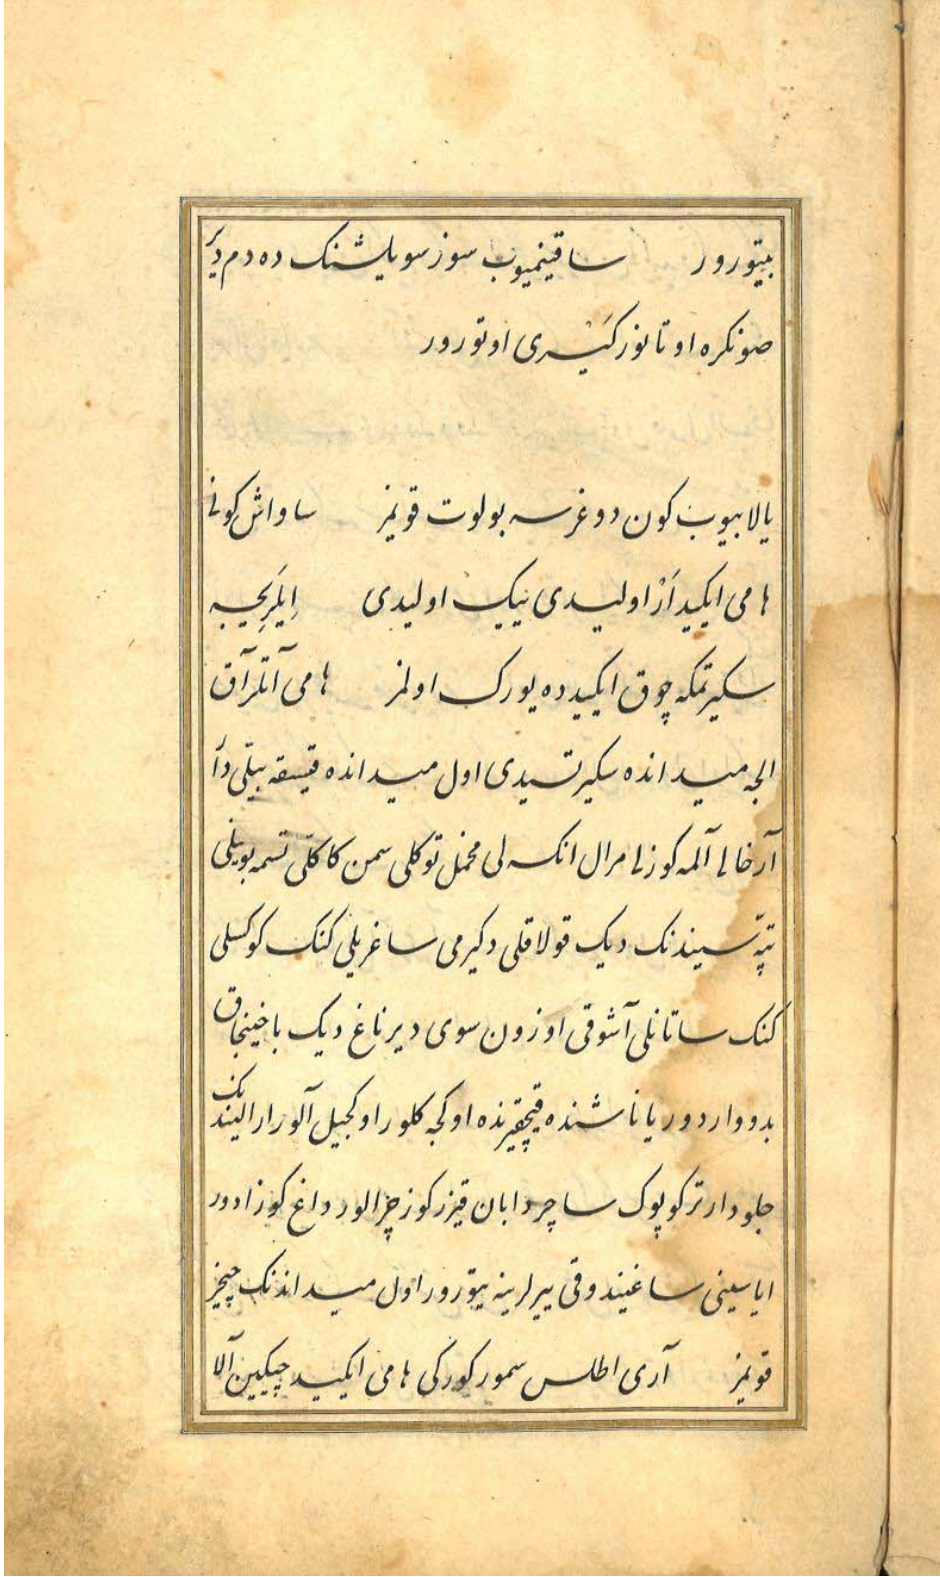 بیتورور ساقینمیوب سوز سویلشنک ده دم دیر
صونکره اوتانور کَیْری اوتورور
یالابیوب کون دوغرسه بولوت قویمز ساواش کونی
هامی ایکید اَرْ اولیدی بیک اولیدی اِیلَرِیجیه
سکیرتمکه چوق ایکیده یورک اولمز هامی آتلر آق
الجه میدانده سکیرتسیدی اول میدانده قیسقه بیللی دآ
آرخالی آلمه کوزلی مرال انکسه لی مخمل توکلی سمن کاکللی تسمه بویینلی
تپه سیندنک دیک قولاقلی دکیرمی ساغریلی کنک کوکسلی
کنک ساتانلی آشوقی اوزون سوی دیرناغ دیک باخینجاق
بدو واردور یاناشنده قیچقیرنده اوکجه کلور اوکجیل آلور ارالیندنک
جلودارتر کوپوک ساچر دابان قیزر کوز چزالور داغ کوزادور
ایاسینی ساغیندوقی ییرلرینه ییتورور اول میداندنک چیخیز
قویمز آری اطلس سمور کورکی هامی ایکید چیکیین آلا